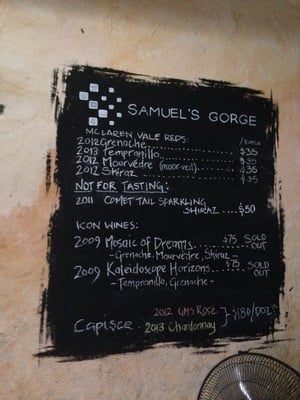 SAMUEL'S GORGE
MCLAREN VALE REDS:
2012 Grenache ........ $35
2013 Tempranillo ........ $35
2012 Mourvèdre (moor-ved) .... $35
2012 Shiraz ........ $35
NOT FOR TASTING:
2011 COMET TAIL SPARKLING
SHIRAZ .... $50
ICON WINES:
2009 Mosaic of Dreams ..... $75 SOLD OUT
- Grenache, Mourvèdre, Shiraz -
2009 Kaleidoscope Horizons ..... $75 SOLD OUT
- Tempranillo, Grenache -
Capisce 2012 GMS Rosé
2013 Chardonnay } $180/DOZ